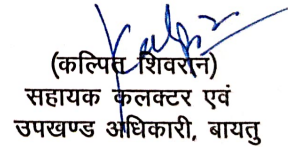 (कल्पित शिवरान)
सहायक कलक्टर एवं
उपखण्ड अधिकारी, बायतु